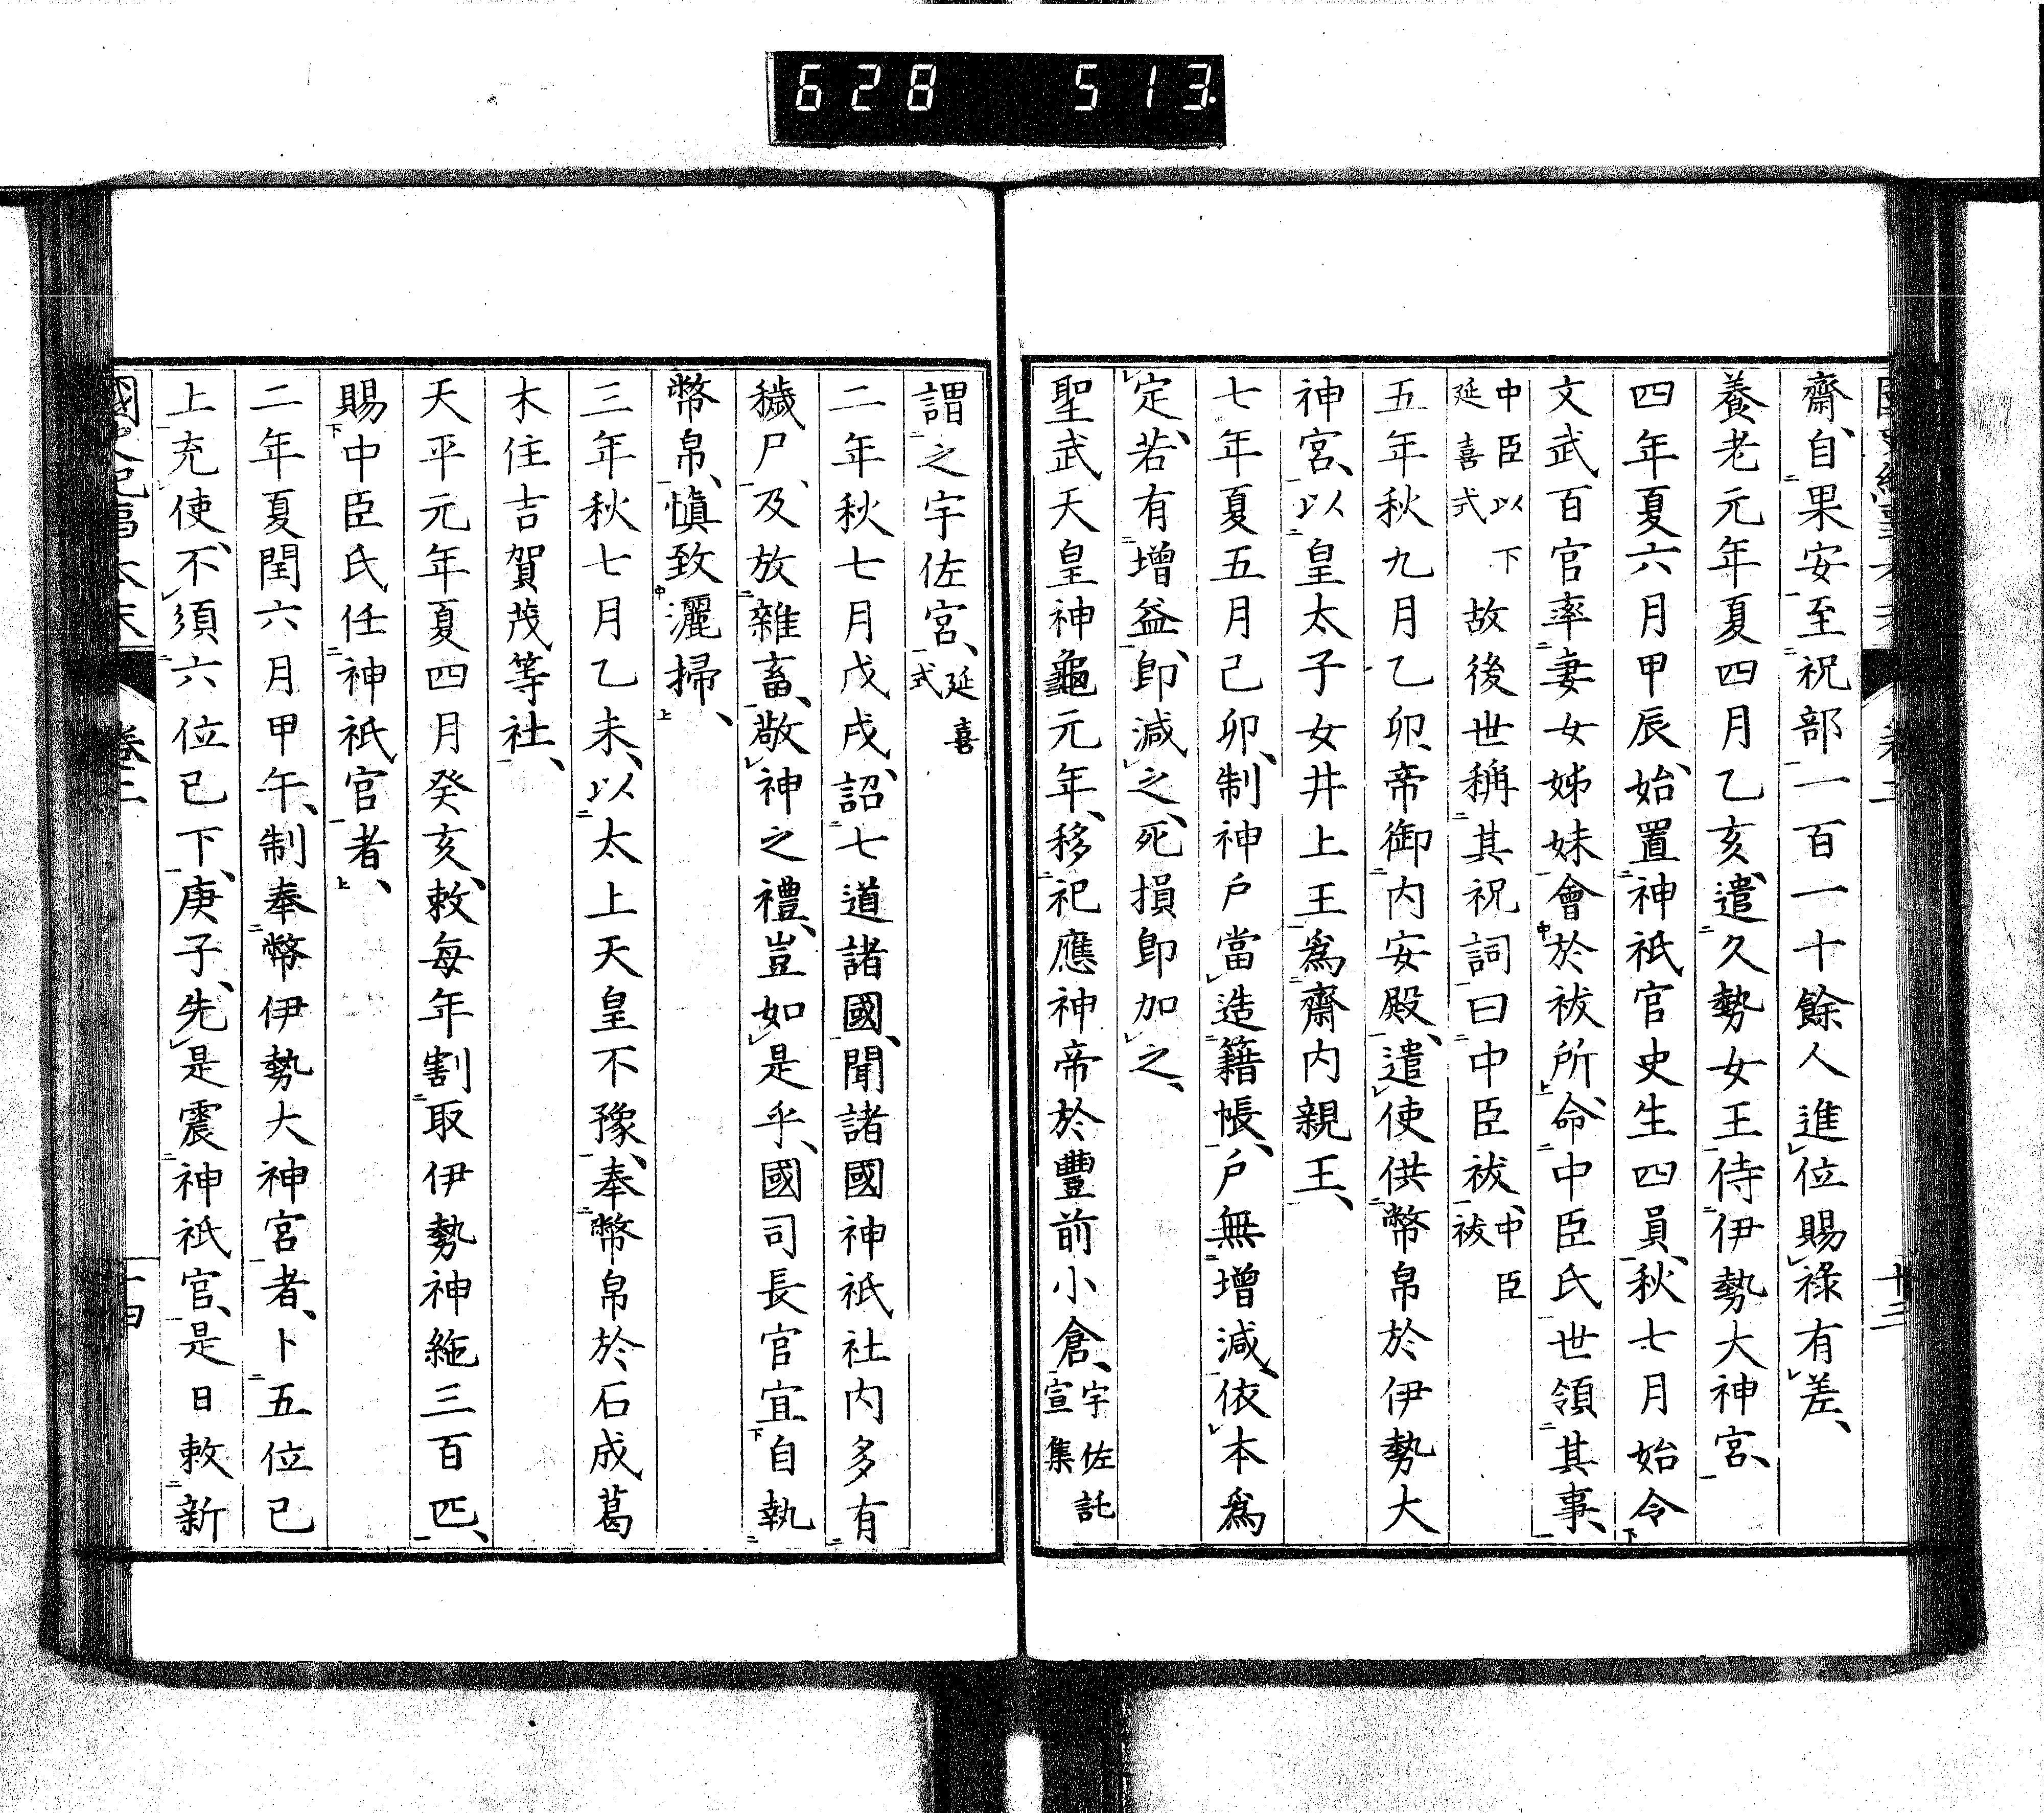 628 513
齋、自果安至祝部一百一十餘人進位賜祿有差、
養老元年夏四月乙亥、遣久勢女王侍伊勢大神宮、
四年夏六月甲辰、始置神祇官史生四員、秋七月始令
文武百官率妻女姊妹會於祓所、命中臣氏世領其事、
中臣以下延喜式故後世稱其祝詞曰中臣祓、中臣祓
五年秋九月乙卯、帝御內安殿、遣使供幣帛於伊勢大
神宮、以皇太子女井上王爲齋內親王、
七年夏五月己卯、制神戶當造籍帳、戶無增減、依本爲
定、若有增益、卽減之、死損卽加之、
聖武天皇神龜元年、移祀應神帝於豐前小倉、宇佐託宣集
謂之宇佐宮、延喜式
二年秋七月戊戌、詔七道諸國、聞諸國神祇社內多有
穢尸、及放雜畜、敬神之禮、豈如是乎、國司長官宜自執
幣帛、愼致灑掃、
三年秋七月乙未、以太上天皇不豫、奉幣帛於石成葛
木住吉賀茂等社、
天平元年夏四月癸亥、敕每年割取伊勢神絁三百匹、
賜中臣氏任神祇官者、
二年夏閏六月甲午、制奉幣伊勢大神宮者、卜五位已
上充使、不須六位已下、庚子、先是震神祇官、是日敕新
卷三